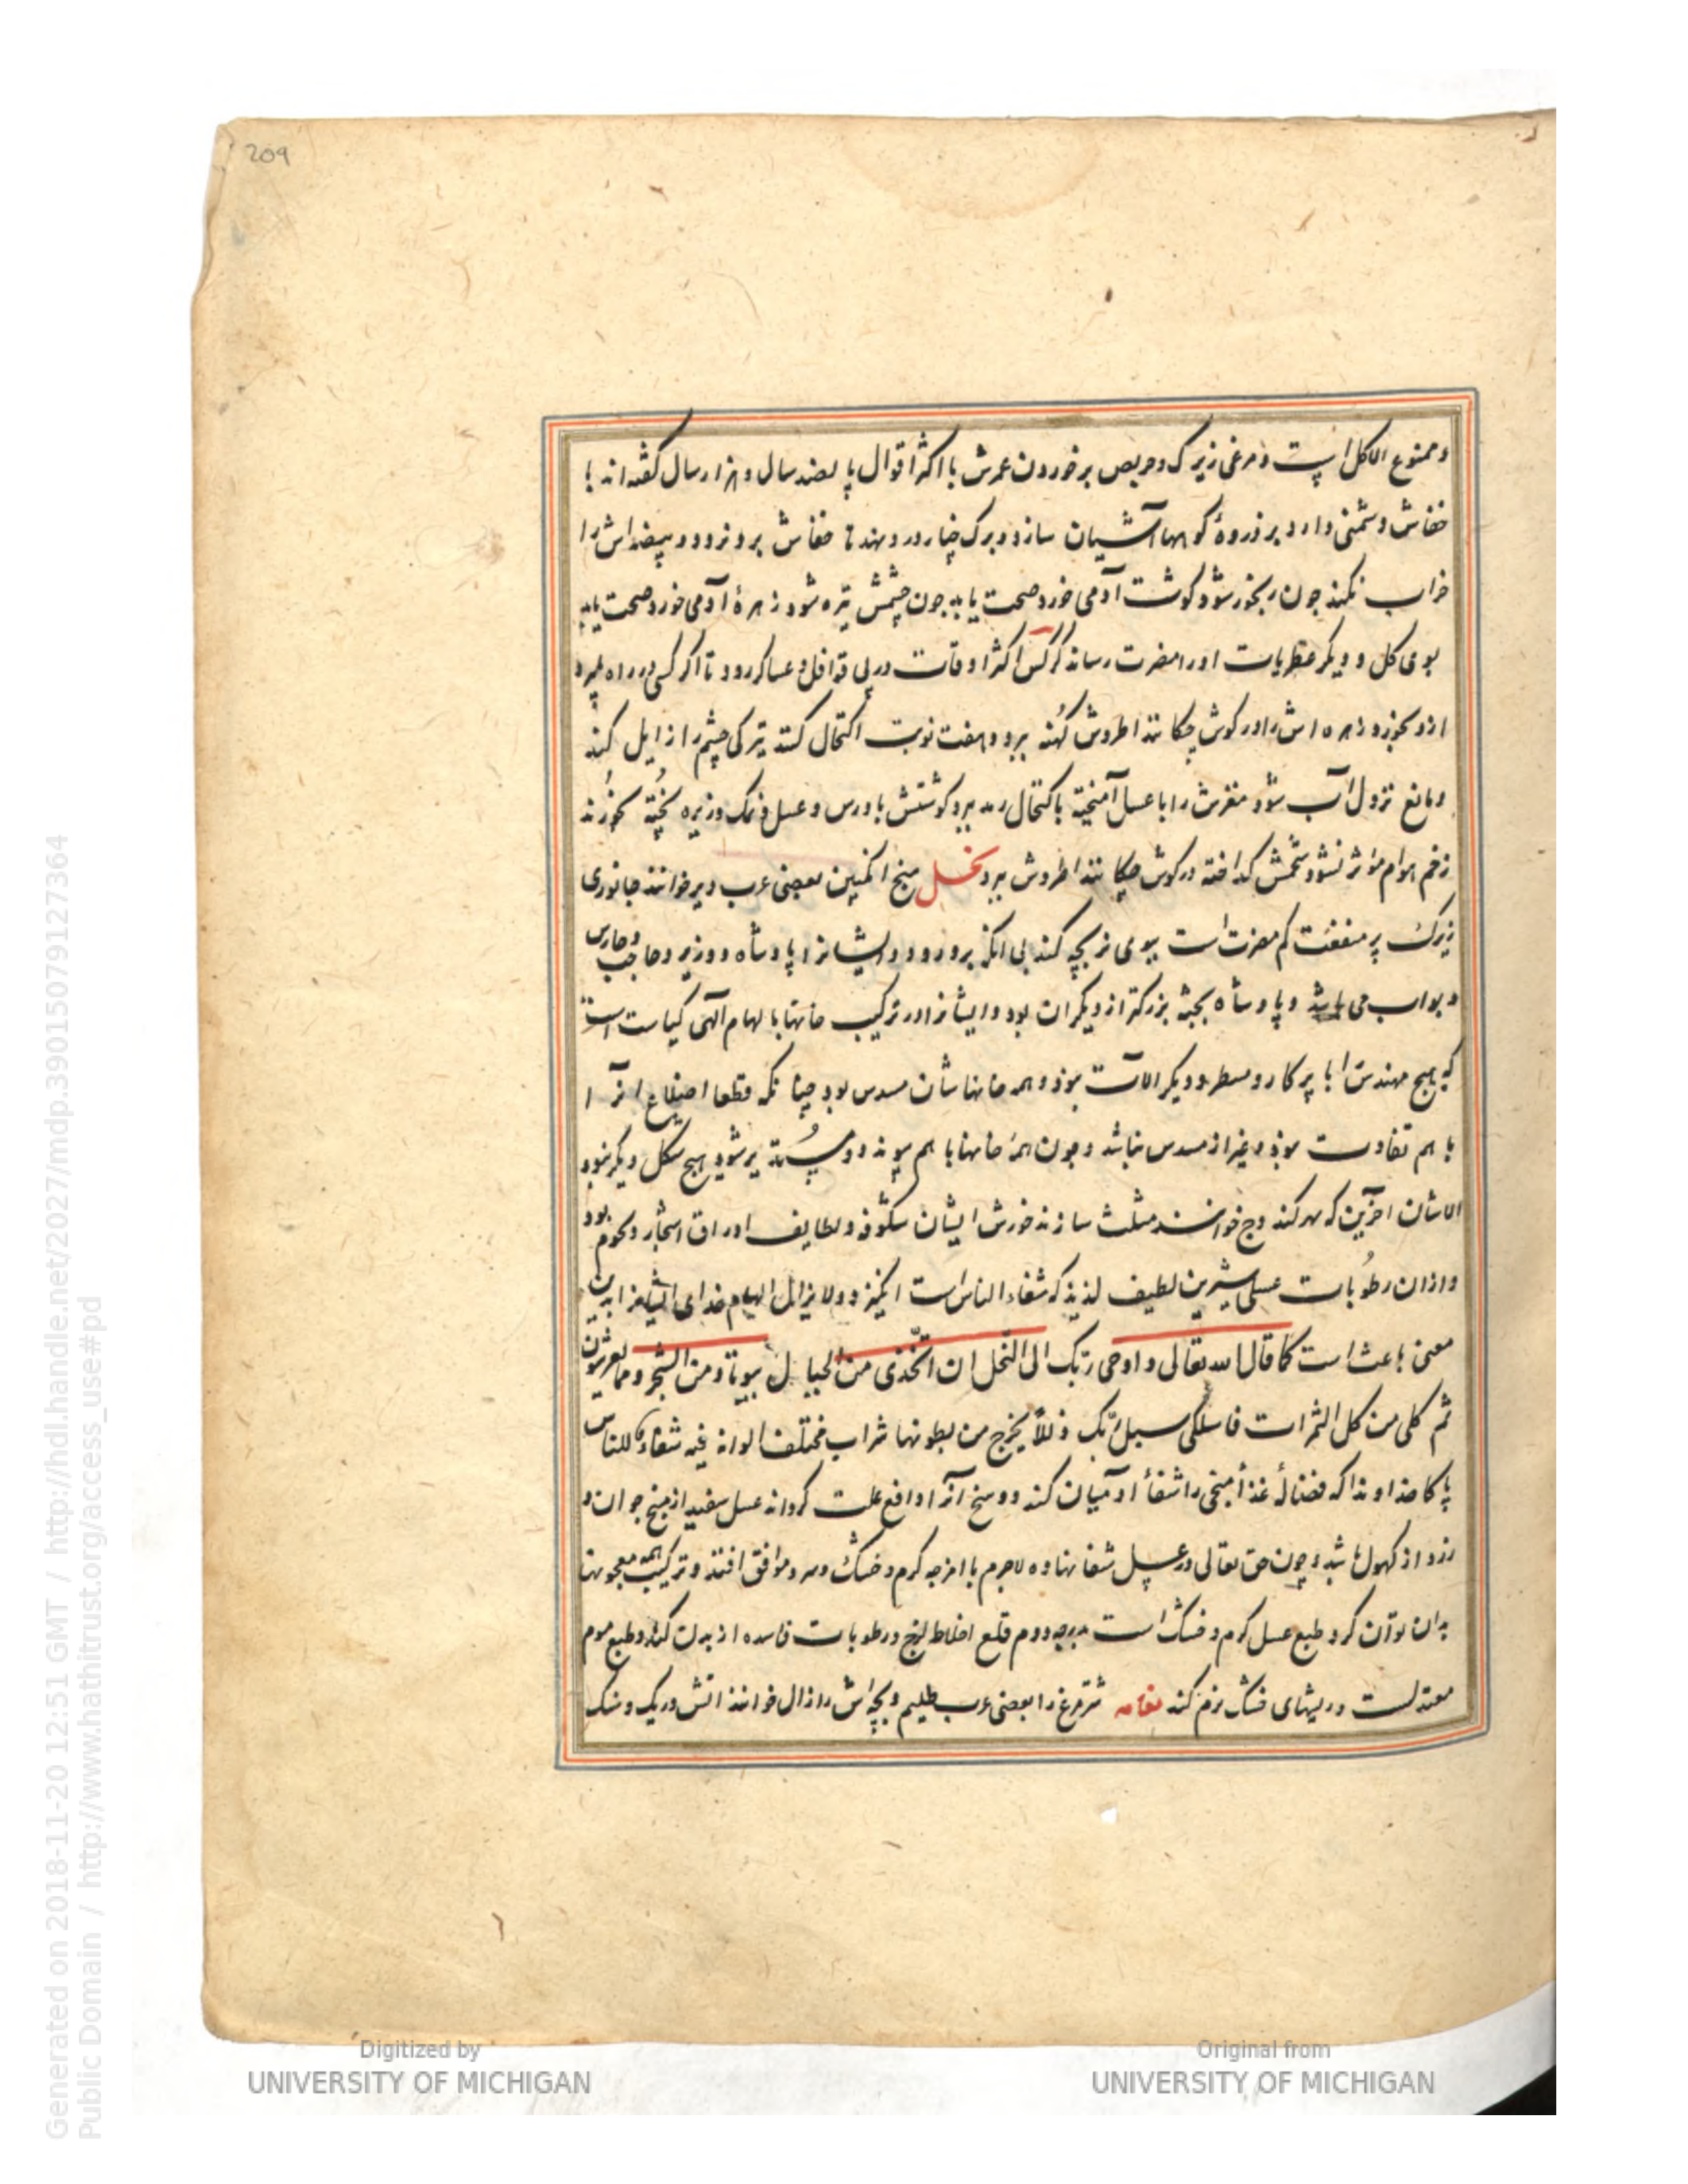 209
و ممنوع الاکل است و مرغی زیرک و حریص بر خوردن عمرش با اکثر اقوال پانصد سال و هزار سال گفته‌اند با
خفاش دشمنی دارد بر ذروهٔ کوهها آشیان سازد و برک چنار درو نهد تا خفاش برو نرود و بیضه‌اش را
خراب نکند چون رنجور شود کوشت آدمی خورد صحت یابد چون چشمش تیره شود زهرهٔ آدمی خورد صحت یابد
بوی کل و دیکر عطریات او را مضرت رساند کرکس اکثر اوقات در پی قوافل و عساکر رود تا اکر کسی در راه بمیرد
ازو بخورد زهره‌اش را در کوش چکانند اطروش کهنه ببرد و هفت نوبت اکتحال کنند تیرکی چشم را زایل کند
و مانع نزول آب شود مغزش را با عسل آمیخته باکتحال رمد ببرد کوشتش با ورس و عسل و نمک و زیره پخته بخورند
زخم هوام مؤثر نشود شحمش کداخته در کوش چکانند اطروش ببرد نحل منج انکبین بعضی عرب دبر خوانند جانوری
زیرک پر منفعت کم مضرت است ببوی نر بچه کند بی انک برو رود و ایشانرا پادشاه و وزیر و حاجب و حارس
و بواب می باشد و پادشاه بجثه بزرکتر از دیکران بود و ایشانرا در ترکیب خانها بالهام الهی کیاست است
که هیچ مهندس را با پرکار و مسطر و دیکر الات نبود و همه خانهاشان مسدس بود چنانکه قطعا اضلاع انرا
با هم تفاوت نبود و غیر از مسدس نباشد و چون همه خانها با هم پیوندد و پسته‌تر شود هیچ شکل دیکر نبود
الا شان اخرین که مهر کند وج خوانند مثلث سازند خورش ایشان شکوفه و لطایف اوراق اشجار و نجوم بود
و از ان رطوبات عسلی شیرین لطیف لذیذ که شفاء الناس است انکیزد و لا یزال الهام خدای ایشانرا بدین
معنی باعث است کما قال الله تعالی و اوحی ربک الی النحل ان اتخذی من الجبال بیوتا و من الشجر و مما یعرشون
ثم کلی من کل الثمرات فاسلکی سبل ربک ذللا یخرج من بطونها شراب مختلف الوانه فیه شفاء للناس
پاکا خداوندا که فضالهٔ غذأ منجی را شفأ ادمیان کند و وسخ آنرا دافع علت کرداند عسل سفید از منج جوان و
زرد از کهول باشد و چون حق تعالی در عسل شفا نهاده لاجرم با امزجه کرم و خشک و سرد موافق افتد و ترکیب همه معجونها
بدان توان کرد طبع عسل کرم و خشک است بدرجه دوم قلع اخلاط لزج و رطوبات فاسده از بدن کند و طبع موم
معتدلست و ریشهای خشک نرم کند نعامه شترمرغ را بعضی عرب ظلیم و بچه‌اش را زال خوانند اتش و ریک و سنک
Digitized by
UNIVERSITY OF MICHIGAN
Original from
UNIVERSITY OF MICHIGAN
Generated on 2018-11-20 12:51 GMT / http://hdl.handle.net/2027/mdp.39015079127364
Public Domain / http://www.hathitrust.org/access_use#pd